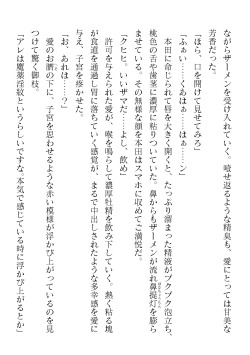 ながらザーメンを受け入れていく。噎せ返るような精臭も、愛にとっては甘美な
芳香だった。
「ほら、口を開けて見せてみろ」
「ふぁい……くあはぁ……はぁ……ン」
本田に命じられて唇を大きく開くと、たっぷり溜まった精液がブクブク泡立ち、
桃色の舌や歯茎に濃厚に粘りついている。鼻からもザーメンが流れ鼻提灯を膨ら
ませている。その無様な顔を本田はスマホに収めてご満悦だ。
「クヒヒ。いいザマだ……よし、飲め」
許可を与えられた愛が、喉を鳴らして濃厚牡精を飲み下していく。熱く粘る塊
が食道を通過し胃に落ちていく感覚が、まるで中出しされたような多幸感を愛に
与え、子宮を疼かせた。
「お、あれは……？」
愛のお臍の下に、子宮を思わせるような赤い模様が浮かび上がっているのを見
つけて驚く御枝。
「アレは魔薬淫紋というらしいですな。本気で感じている時に浮かび上がるとか」